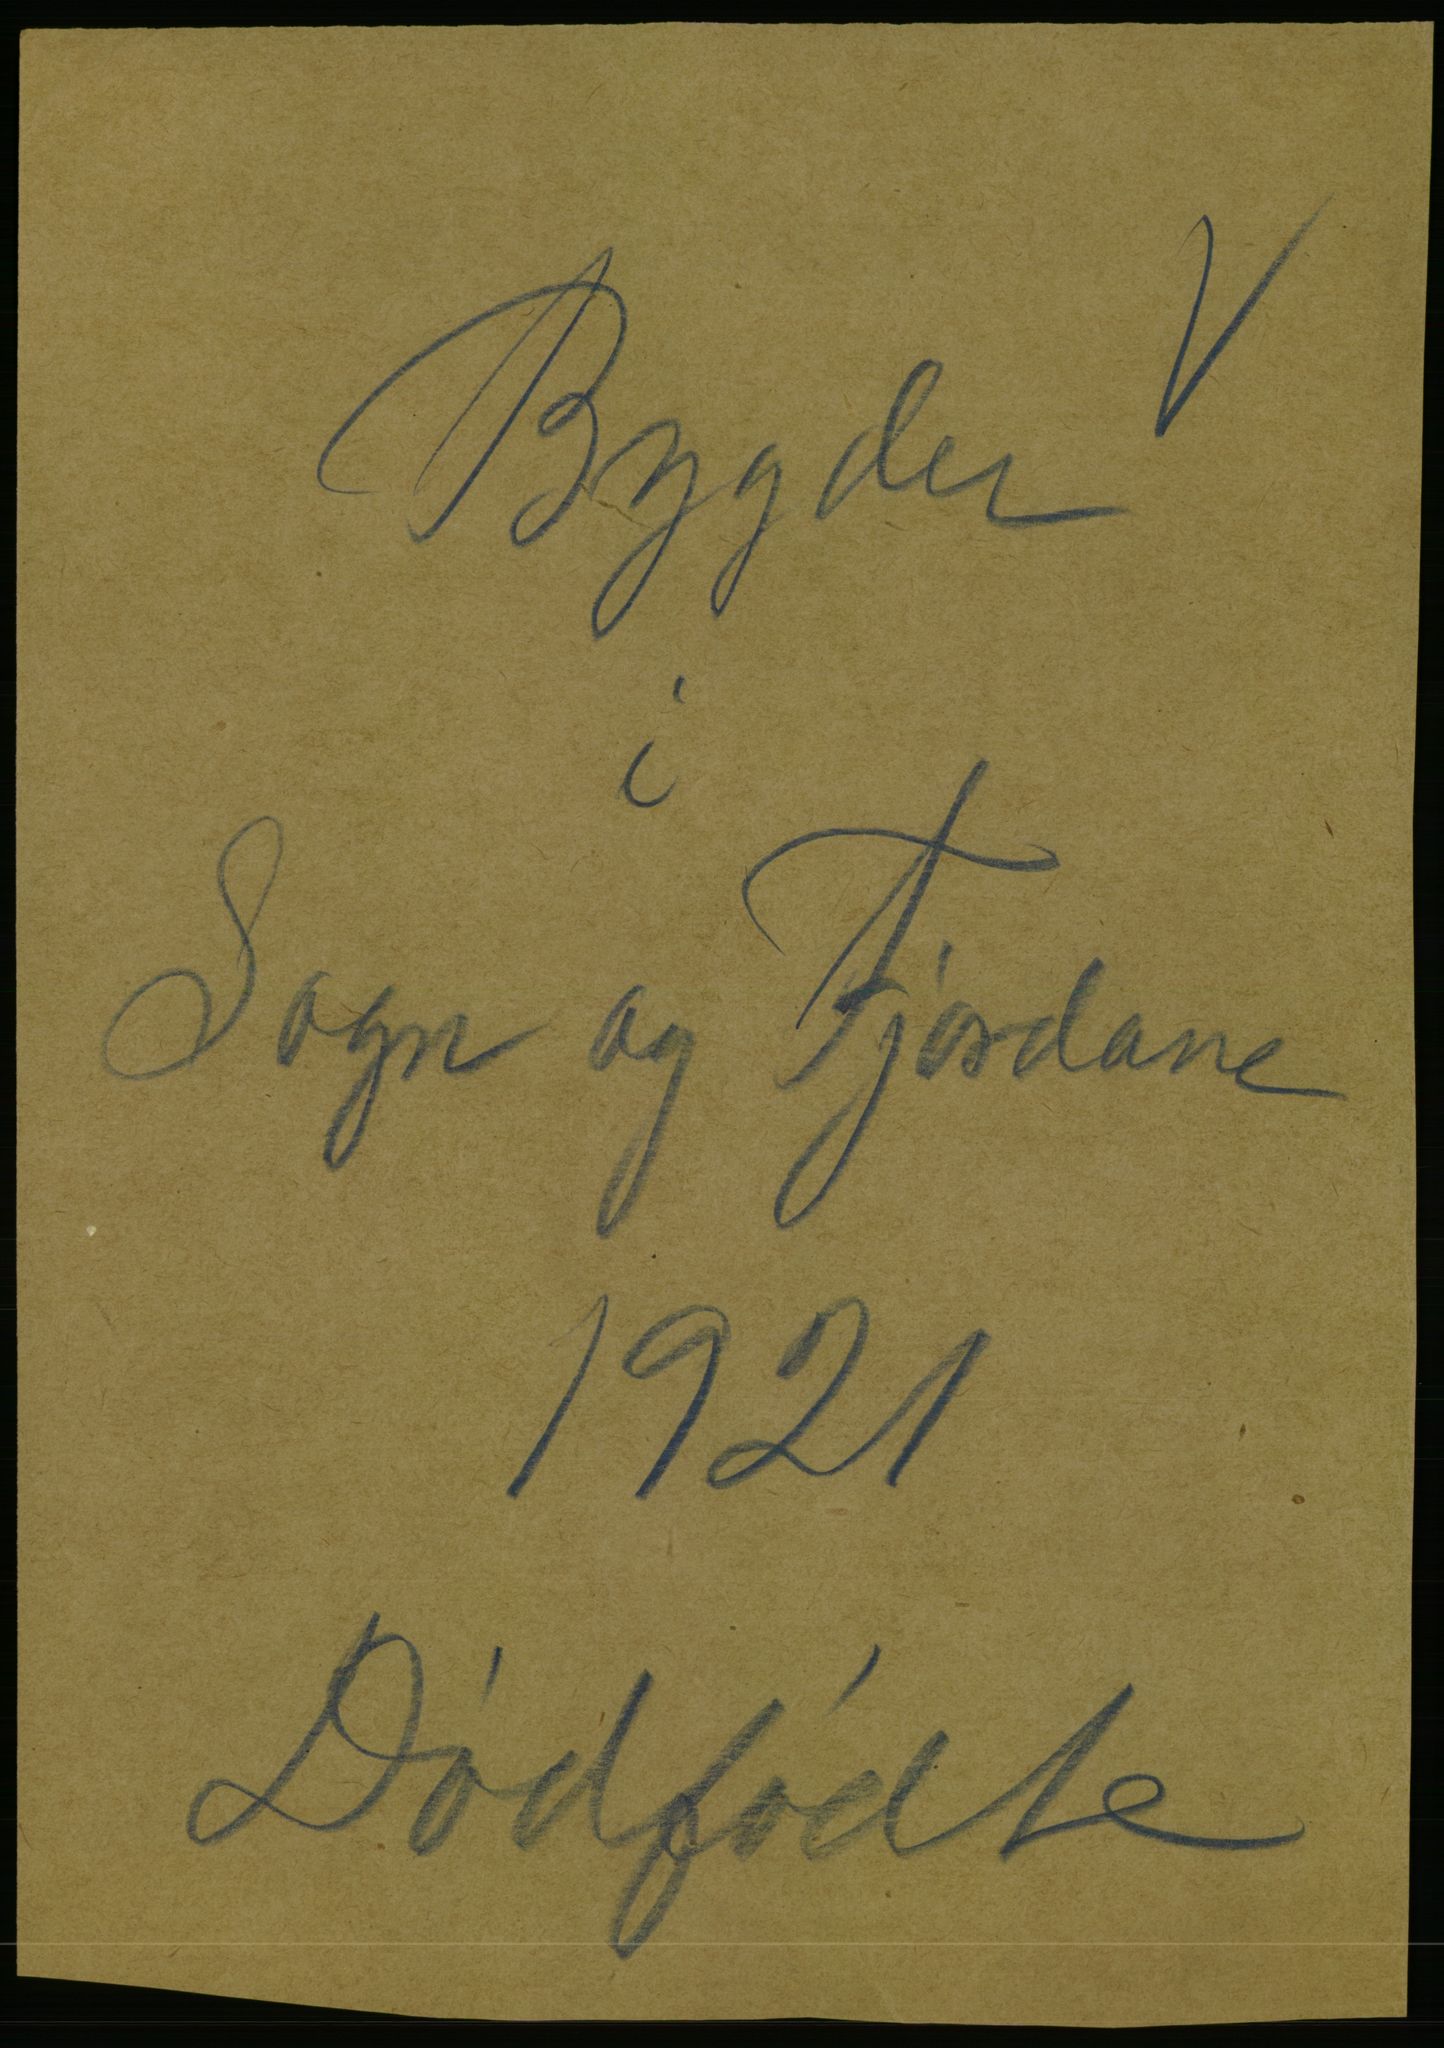 Bygder V
i
Sogn og Fjordane
1921
Dødfødte